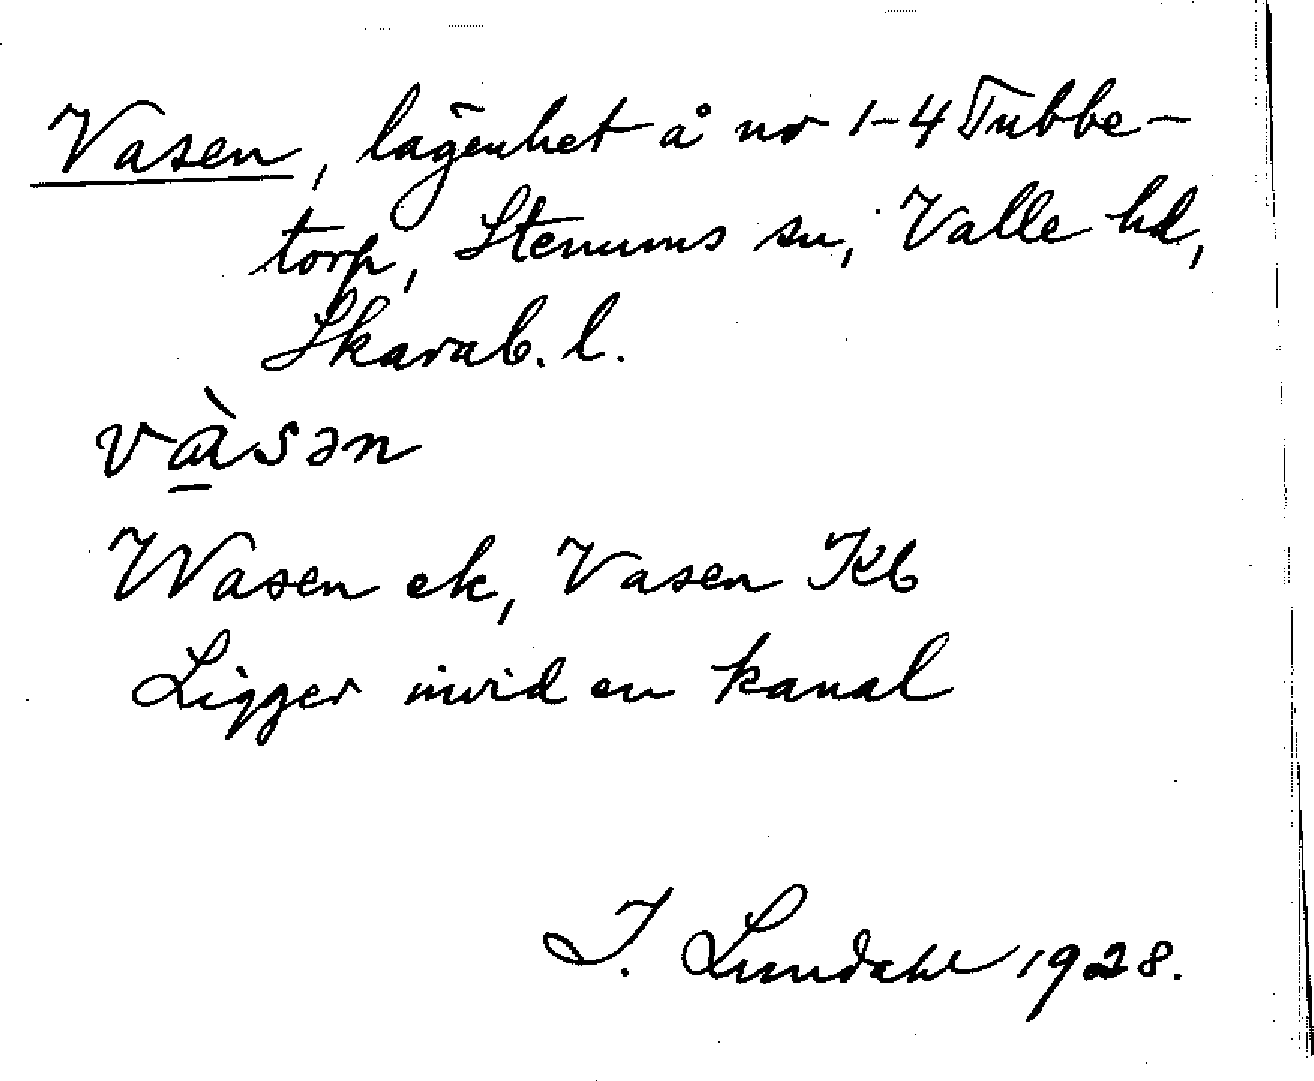 Vasen, lägenhet å nr 1-4 Tubbe-
torp, Stenums sn, Valle hd,
Skarab. l.
và̱sən
Wasen ek, Vasen Kb
Ligger invid en kanal
I. Lundahl 1928.